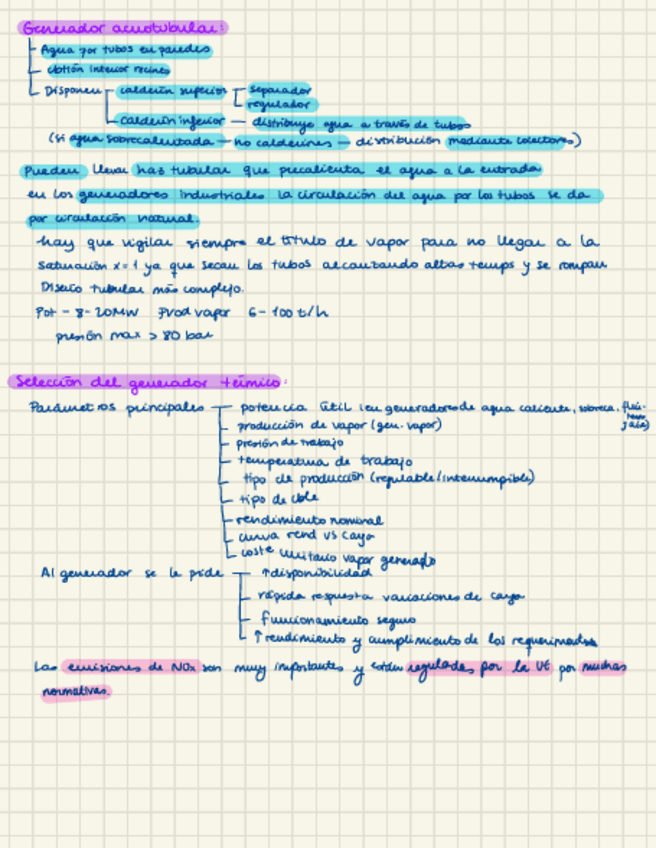 Generador acuotubular:
Agua por tubos en paredes
cbtión interior recinto
Disponen calderín superior separador
regulador
calderín inferior — distribuye agua a través de tubos
(si agua sobrecalentada — no calderines — distribución mediante colectores)
Pueden llevar haz tubular que precalienta el agua a la entrada
en los generadores industriales la circulación del agua por los tubos se da
por circulación natural.
hay que vigilar siempre el título de vapor para no llegar a la
saturación x=1 ya que secan los tubos alcanzando altas temps y se rompan
Diseño tubular más complejo.
Pot - 8-20MW Prod vapor 6-100 t/h
presión max > 80 bar
Selección del generador térmico:
Parámetros principales potencia útil (en generadores de agua caliente, sobreca,
producción de vapor (gen. vapor)
presión de trabajo
temperatura de trabajo
tipo de producción (regulable/interrumpible)
tipo de cble
rendimiento nominal
curva rend vs carga
coste unitario vapor generado
Al generador se le pide ↑disponibilidad
rápida respuesta variaciones de carga
funcionamiento seguro
↑rendimiento y cumplimiento de los requerimientos
Las emisiones de NOx son muy importantes y están reguladas por la UE por muchas
normativas.